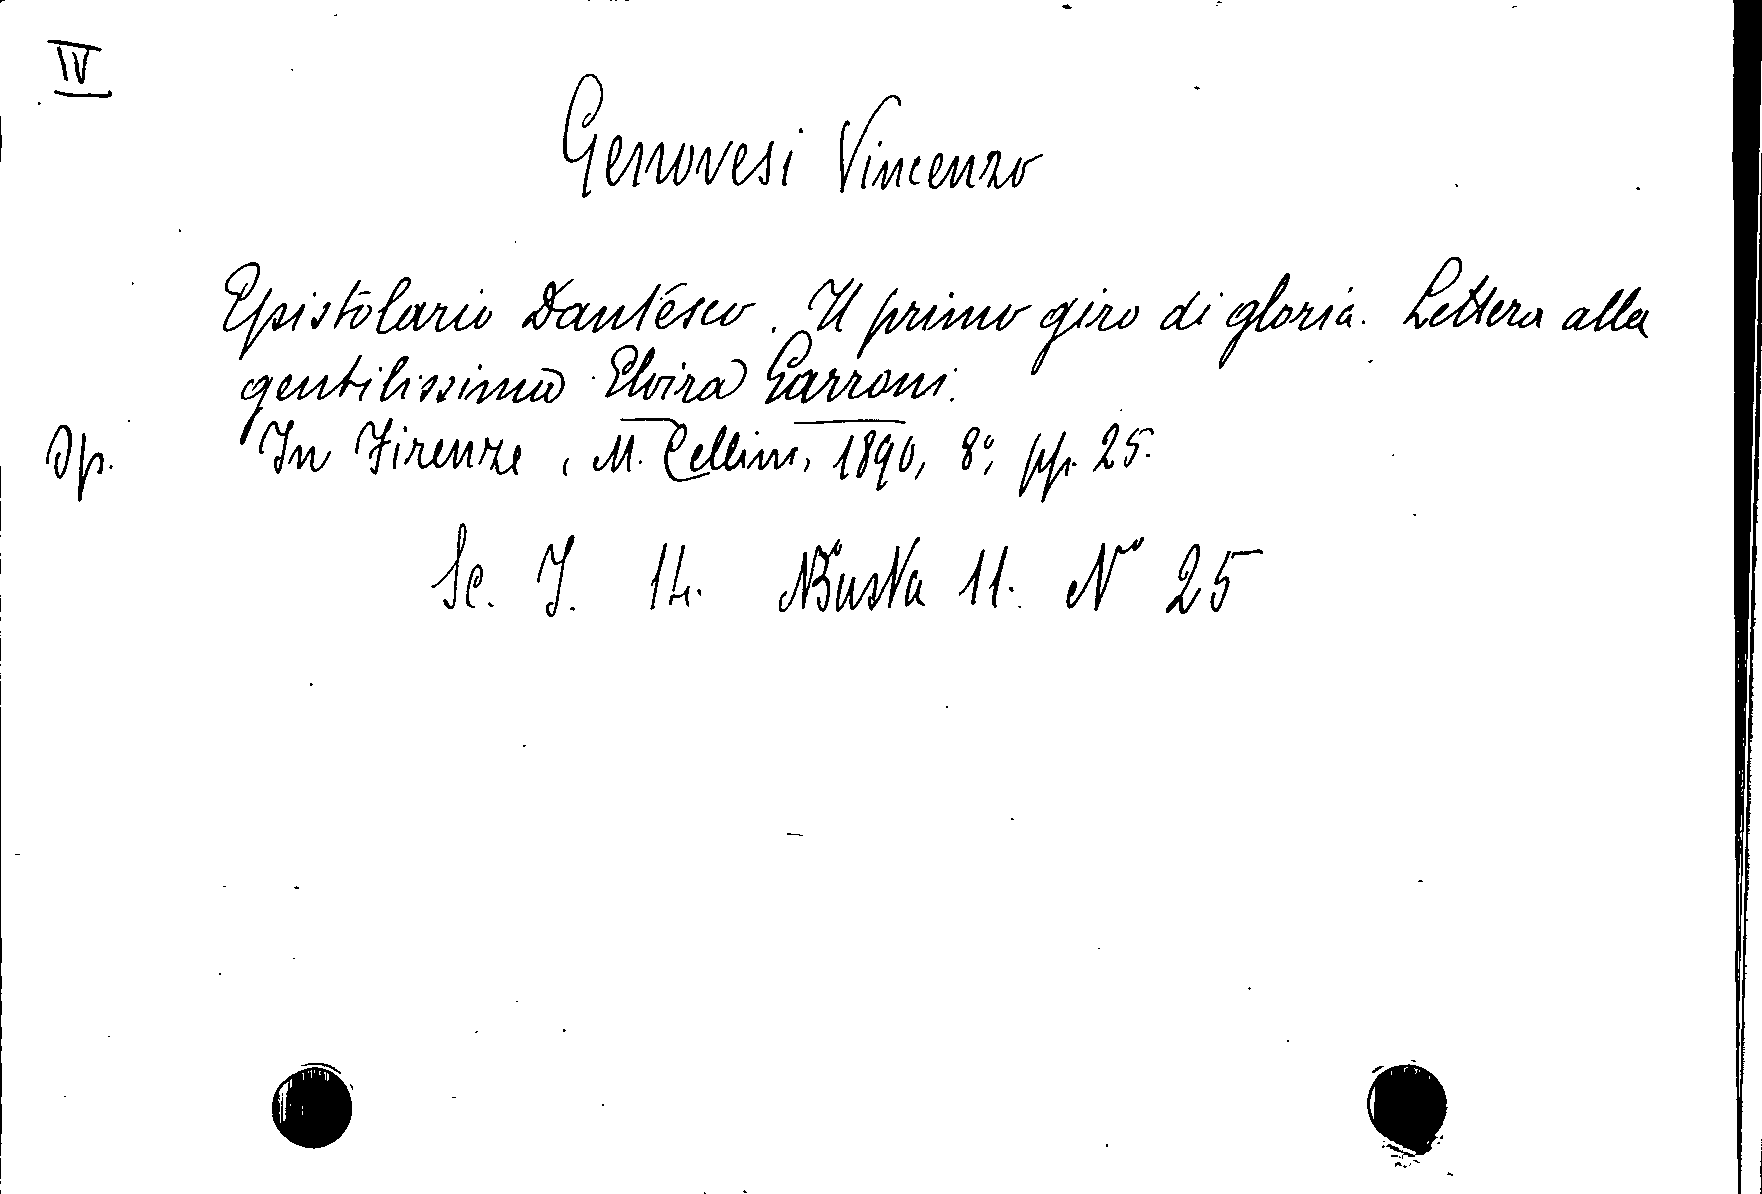 IV
Genovesi Vincenzo
Epistolario Dantesco. Il primo giro di gloria. Lettera alla
gentilissima Elvira Garroni.
Op. In Firenze, M. Cellini, 1890, 8°, pp. 25.
Sc. I. 14. Busta 11. N° 25